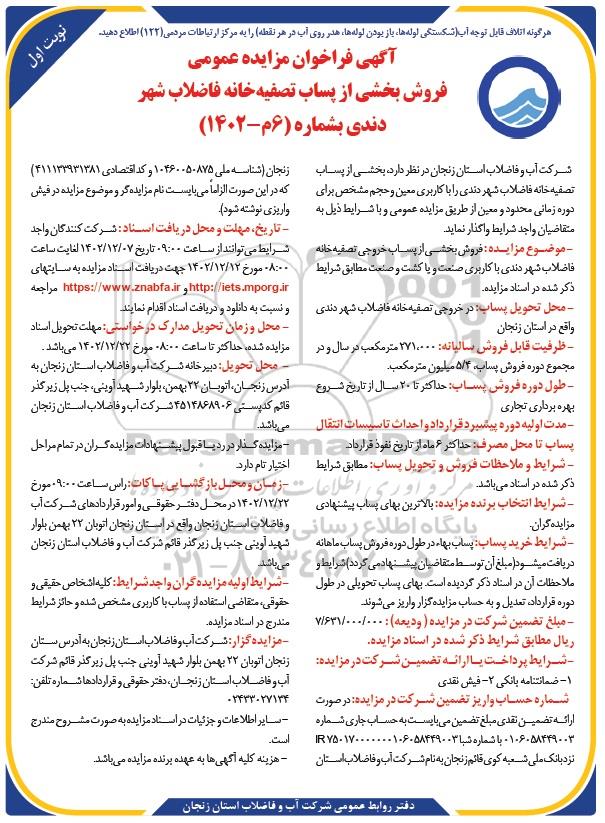 هرگونه اتلاف قابل توجه آب(شکستگی لوله‌ها، باز بودن لوله‌ها، هدر روی آب در هر نقطه) را به مرکز ارتباطات مردمی(۱۲۲) اطلاع دهید.
نوبت اول
آگهی فراخوان مزایده عمومی
فروش بخشی از پساب تصفیه‌خانه فاضلاب شهر
دندی بشماره (۶م-۱۴۰۲)
شرکت آب و فاضلاب استان زنجان در نظر دارد، بخشی از پساب
تصفیه‌خانه فاضلاب شهر دندی را با کاربری معین و حجم مشخص برای
دوره زمانی محدود و معین از طریق مزایده عمومی و با شرایط ذیل به
متقاضیان واجد شرایط واگذار نماید.
-موضوع مزایده: فروش بخشی از پساب خروجی تصفیه‌خانه
فاضلاب شهر دندی با کاربری صنعت و یا کشت و صنعت مطابق شرایط
ذکر شده در اسناد مزایده.
-محل تحویل پساب: در خروجی تصفیه‌خانه فاضلاب شهر دندی
واقع در استان زنجان
-ظرفیت قابل فروش سالیانه: ۲۷۱،۰۰۰ مترمکعب در سال و در
مجموع دوره فروش پساب، ۵/۴ میلیون مترمکعب.
-طول دوره فروش پساب: حداکثر تا ۲۰ سال از تاریخ شروع
بهره برداری تجاری
-مدت اولیه دوره پیشبرد قرارداد و احداث تاسیسات انتقال
پساب تا محل مصرف: حداکثر ۶ ماه از تاریخ نفوذ قرارداد.
-شرایط و ملاحظات فروش و تحویل پساب: مطابق شرایط
ذکر شده در اسناد می‌باشد.
-شرایط انتخاب برنده مزایده: بالاترین بهای پساب پیشنهادی
مزایده‌گران.
-شرایط خرید پساب: پساب بهاء در طول دوره فروش پساب ماهانه
دریافت میشود(مبلغ آن توسط متقاضیان پیشنهاد می‌گردد) شرایط و
ملاحظات آن در اسناد ذکر گردیده است. بهای پساب تحویلی در طول
دوره قرارداد، تعدیل و به حساب مزایده‌گزار واریز می‌شوند.
-مبلغ تضمین شرکت در مزایده ( ودیعه) : ۷/۶۳۱/۰۰۰/۰۰۰
ریال مطابق شرایط ذکر شده در اسناد مزایده.
-شرایط پرداخت یا ارائه تضمین شرکت در مزایده:
۱- ضمانتنامه بانکی ۲- فیش نقدی
شماره حساب واریز تضمین شرکت در مزایده: در صورت
ارائه تضمین نقدی مبلغ تضمین می‌بایست به حساب جاری شماره
۰۱۰۶۰۵۸۴۴۹۰۰۳ با شماره شبا IR ۷۵۰۱۷۰۰۰۰۰۰۰۱۰۶۰۵۸۴۴۹۰۰۳
نزد بانک ملی شعبه کوی قائم زنجان به نام شرکت آب و فاضلاب استان
زنجان (شناسه ملی ۱۰۴۶۰۰۵۰۸۷۵ و کد اقتصادی ۴۱۱۱۳۳۹۳۱۳۸۱)
که در این صورت الزاماً می‌بایست نام مزایده‌گر و موضوع مزایده در فیش
واریزی نوشته شود).
-تاریخ، مهلت و محل دریافت اسناد: شرکت کنندگان واجد
شرایط می‌توانند از ساعت ۰۹:۰۰ تاریخ ۱۴۰۲/۱۲/۰۷ لغایت ساعت
۰۸:۰۰ مورخ ۱۴۰۲/۱۲/۱۲ جهت دریافت اسناد مزایده به سایتهای
http://iets.mporg.ir و https://www.znabfa.ir مراجعه
و نسبت به دانلود و دریافت اسناد اقدام نمایند.
- محل و زمان تحویل مدارک درخواستی: مهلت تحویل اسناد
مزایده شده، حداکثر تا ساعت ۰۸:۰۰ مورخ ۱۴۰۲/۱۲/۲۲ می‌باشد .
- محل تحویل: دبیرخانه شرکت آب و فاضلاب استان زنجان به
آدرس زنجان، اتوبان ۲۲ بهمن، بلوار شهید آوینی، جنب پل زیر گذر
قائم کدپستی ۴۵۱۴۸۶۸۹۰۶ شرکت آب و فاضلاب استان زنجان
می‌باشد.
-مزایده‌گذار در رد یا قبول پیشنهادات مزایده‌گران در تمام مراحل
اختیار تام دارد.
-زمان و محل بازگشایی پاکات: راس ساعت ۰۹:۰۰ مورخ
۱۴۰۲/۱۲/۲۲ در محل دفتر حقوقی و امور قراردادهای شرکت آب
و فاضلاب استان زنجان واقع در استان زنجان اتوبان ۲۲ بهمن بلوار
شهید آوینی جنب پل زیر گذر قائم شرکت آب و فاضلاب استان زنجان
می‌باشد.
-شرایط اولیه مزایده گران واجد شرایط: کلیه اشخاص حقیقی و
حقوقی، متقاضی استفاده از پساب با کاربری مشخص شده و حائز شرایط
مندرج در اسناد مزایده.
-مزایده‌گزار: شرکت آب و فاضلاب استان زنجان به آدرس ستان
زنجان اتوبان ۲۲ بهمن بلوار شهید آوینی جنب پل زیر گذر قائم شرکت
آب و فاضلاب استان زنجان، دفتر حقوقی و قراردادها شماره تلفن:
۰۲۴۳۳۰۲۷۱۳۴
-سایر اطلاعات و جزئیات در اسناد مزایده به صورت مشروح مندرج
است.
- هزینه کلیه آگهی‌ها به عهده برنده مزایده می‌باشد.
دفتر روابط عمومی شرکت آب و فاضلاب استان زنجان